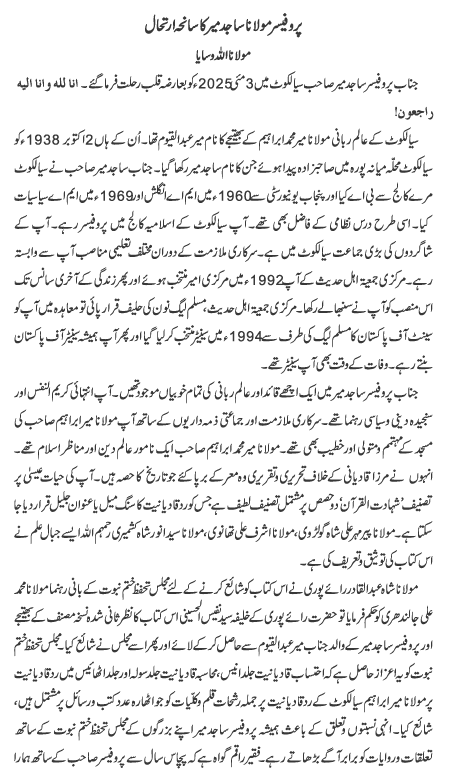 پروفیسر مولانا ساجد میر کا سانحہ ارتحال
مولانا اللہ وسایا
جناب پروفیسر ساجد میر صاحب سیالکوٹ میں 3 مئی 2025ء کو بعارضہ قلب رحلت فرما گئے۔ انا للہ وانا الیہ
راجعون!
سیالکوٹ کے عالم ربانی مولانا میر محمد ابراہیم کے بھتیجے کا نام میر عبدالقیوم تھا۔ اُن کے ہاں 2 اکتوبر 1938ء کو
سیالکوٹ محلہ میانہ پورہ میں صاحبزادہ پیدا ہوئے جن کا نام ساجد میر رکھا گیا۔ جناب ساجد میر صاحب نے سیالکوٹ
مرے کالج سے بی اے کیا اور پنجاب یونیورسٹی سے 1960ء میں ایم اے انگلش اور 1969ء میں ایم اے سیاسیات
کیا۔ اسی طرح درس نظامی کے فاضل بھی تھے۔ آپ سیالکوٹ کے اسلامیہ کالج میں پروفیسر رہے۔ آپ کے
شاگردوں کی بڑی جماعت سیالکوٹ میں ہے۔ سرکاری ملازمت کے دوران مختلف تعلیمی مناصب آپ سے وابستہ
رہے۔ مرکزی جمعیۃ اہل حدیث کے آپ 1992ء میں مرکزی امیر منتخب ہوئے اور پھر زندگی کے آخری سانس تک
اس منصب کو آپ نے سنبھالے رکھا۔ مرکزی جمعیۃ اہل حدیث، مسلم لیگ نون کی حلیف قرار پائی تو معاہدہ میں آپ کو
سینٹ آف پاکستان کا مسلم لیگ کی طرف سے 1994ء میں سینیٹر منتخب کر لیا گیا اور پھر آپ ہمیشہ سینیٹر آف پاکستان
بنتے رہے۔ وفات کے وقت بھی آپ سینیٹر تھے۔
جناب پروفیسر ساجد میر میں ایک اچھے قائد اور عالم ربانی کی تمام خوبیاں موجود تھیں۔ آپ انتہائی کریم النفس اور
سنجیدہ دینی و سیاسی رہنما تھے۔ سرکاری ملازمت اور جماعتی ذمہ داریوں کے ساتھ آپ مولانا میر ابراہیم صاحب کی
مسجد کے مہتمم و متولی اور خطیب بھی تھے۔ مولانا میر محمد ابراہیم صاحب ایک نامور عالم دین اور مناظر اسلام تھے۔
انہوں نے مرزا قادیانی کے خلاف تحریری و تقریری وہ معرکے برپا کئے جو تاریخ کا حصہ ہیں۔ آپ کی حیات عیسیٰ پر
تصنیف ’شہادت القرآن‘ دو حصص پر مشتمل تصنیف لطیف ہے جس کو رد قادیانیت کا سنگ میل یا عنوان جلیل قرار دیا جا
سکتا ہے۔ مولانا پیر مہر علی شاہ گولڑوی، مولانا اشرف علی تھانوی، مولانا سید انور شاہ کشمیری رحمہم اللہ ایسے جبال علم نے
اس کتاب کی توثیق و تعریف کی ہے۔
مولانا شاہ عبدالقادر رائے پوری نے اس کتاب کو شائع کرنے کے لئے مجلس تحفظ ختم نبوت کے بانی رہنما مولانا محمد
علی جالندھری کو حکم فرمایا تو حضرت رائے پوری کے خلیفہ سید نفیس الحسینی اس کتاب کا نظر ثانی شدہ نسخہ مصنف کے بھتیجے
اور پروفیسر ساجد میر کے والد جناب میر عبدالقیوم سے حاصل کر کے لائے اور پھر اسے مجلس نے شائع کیا۔ مجلس تحفظ ختم
نبوت کو یہ اعزاز حاصل ہے کہ احتساب قادیانیت جلد انیس، محاسبہ قادیانیت جلد سولہ اور جلد اٹھائیس میں رد قادیانیت
پر مولانا میر ابراہیم سیالکوٹی کے رد قادیانیت پر جملہ رشحات قلم و کلیات کو جو اٹھارہ عدد کتب و رسائل پر مشتمل ہیں،
شائع کیا۔ انہی نسبتوں و تعلق کے باعث ہمیشہ پروفیسر ساجد میر اپنے بزرگوں کے مجلس تحفظ ختم نبوت کے ساتھ
تعلقات و روایات کو برابر آگے بڑھاتے رہے۔ فقیر راقم گواہ ہے کہ پچاس سال سے پروفیسر صاحب کے ساتھ ہمارا